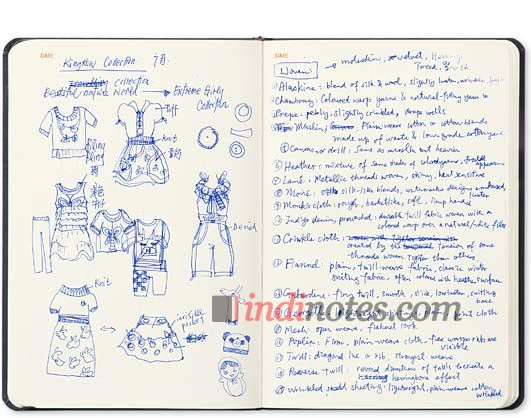 DATE
Kingkow Collection 7月.
collection
Beautiful nature world → Extreme Girly
Collection
knit
bling
bling
Denim
Knit
invisible
pocket
DATE
Woven → moleskin, velvet,
Tweed,
Alaskine: blend of silk & wool, slightly
Chambray: Coloured warp yarns & natural filling yarn
Crepe: pebbly, slightly crinkled,
Muslin: Plain weave cotton or cotton blends
made up of waste & low grade cotton yarn
Canvas or drill: Same as muslin but heavier
Heather: mixture of same shades of
appearance
Lamé: Metallic threads woven, shiny, heat sensitive
Moiré: silk-like blends, watermarks design embossed
Monk's cloth: rough, basketlike, soft,
Indigo denim, prewashed: durable twill fabric woven with a
colored warp over a natural/white filler
Crinkle cloth:
created by the tension of some
threads woven tighter than others.
Flannel: plain, twill-weave fabric, classic winter
suiting fabric, often colored with
lindinotes.com
Gabardine: Firm, twill, smooth, slick,
Georgette:
Mesh: open weave, fishnet look
Poplin: Firm, plain-weave cloth, fine
visible
Twill: diagonal line or rib, strongest weave
Reverse twill: reversed directions of twills create a
herringbone effect
Wrinkled sheeting: lightweight, plain weave cotton,
wrinkled